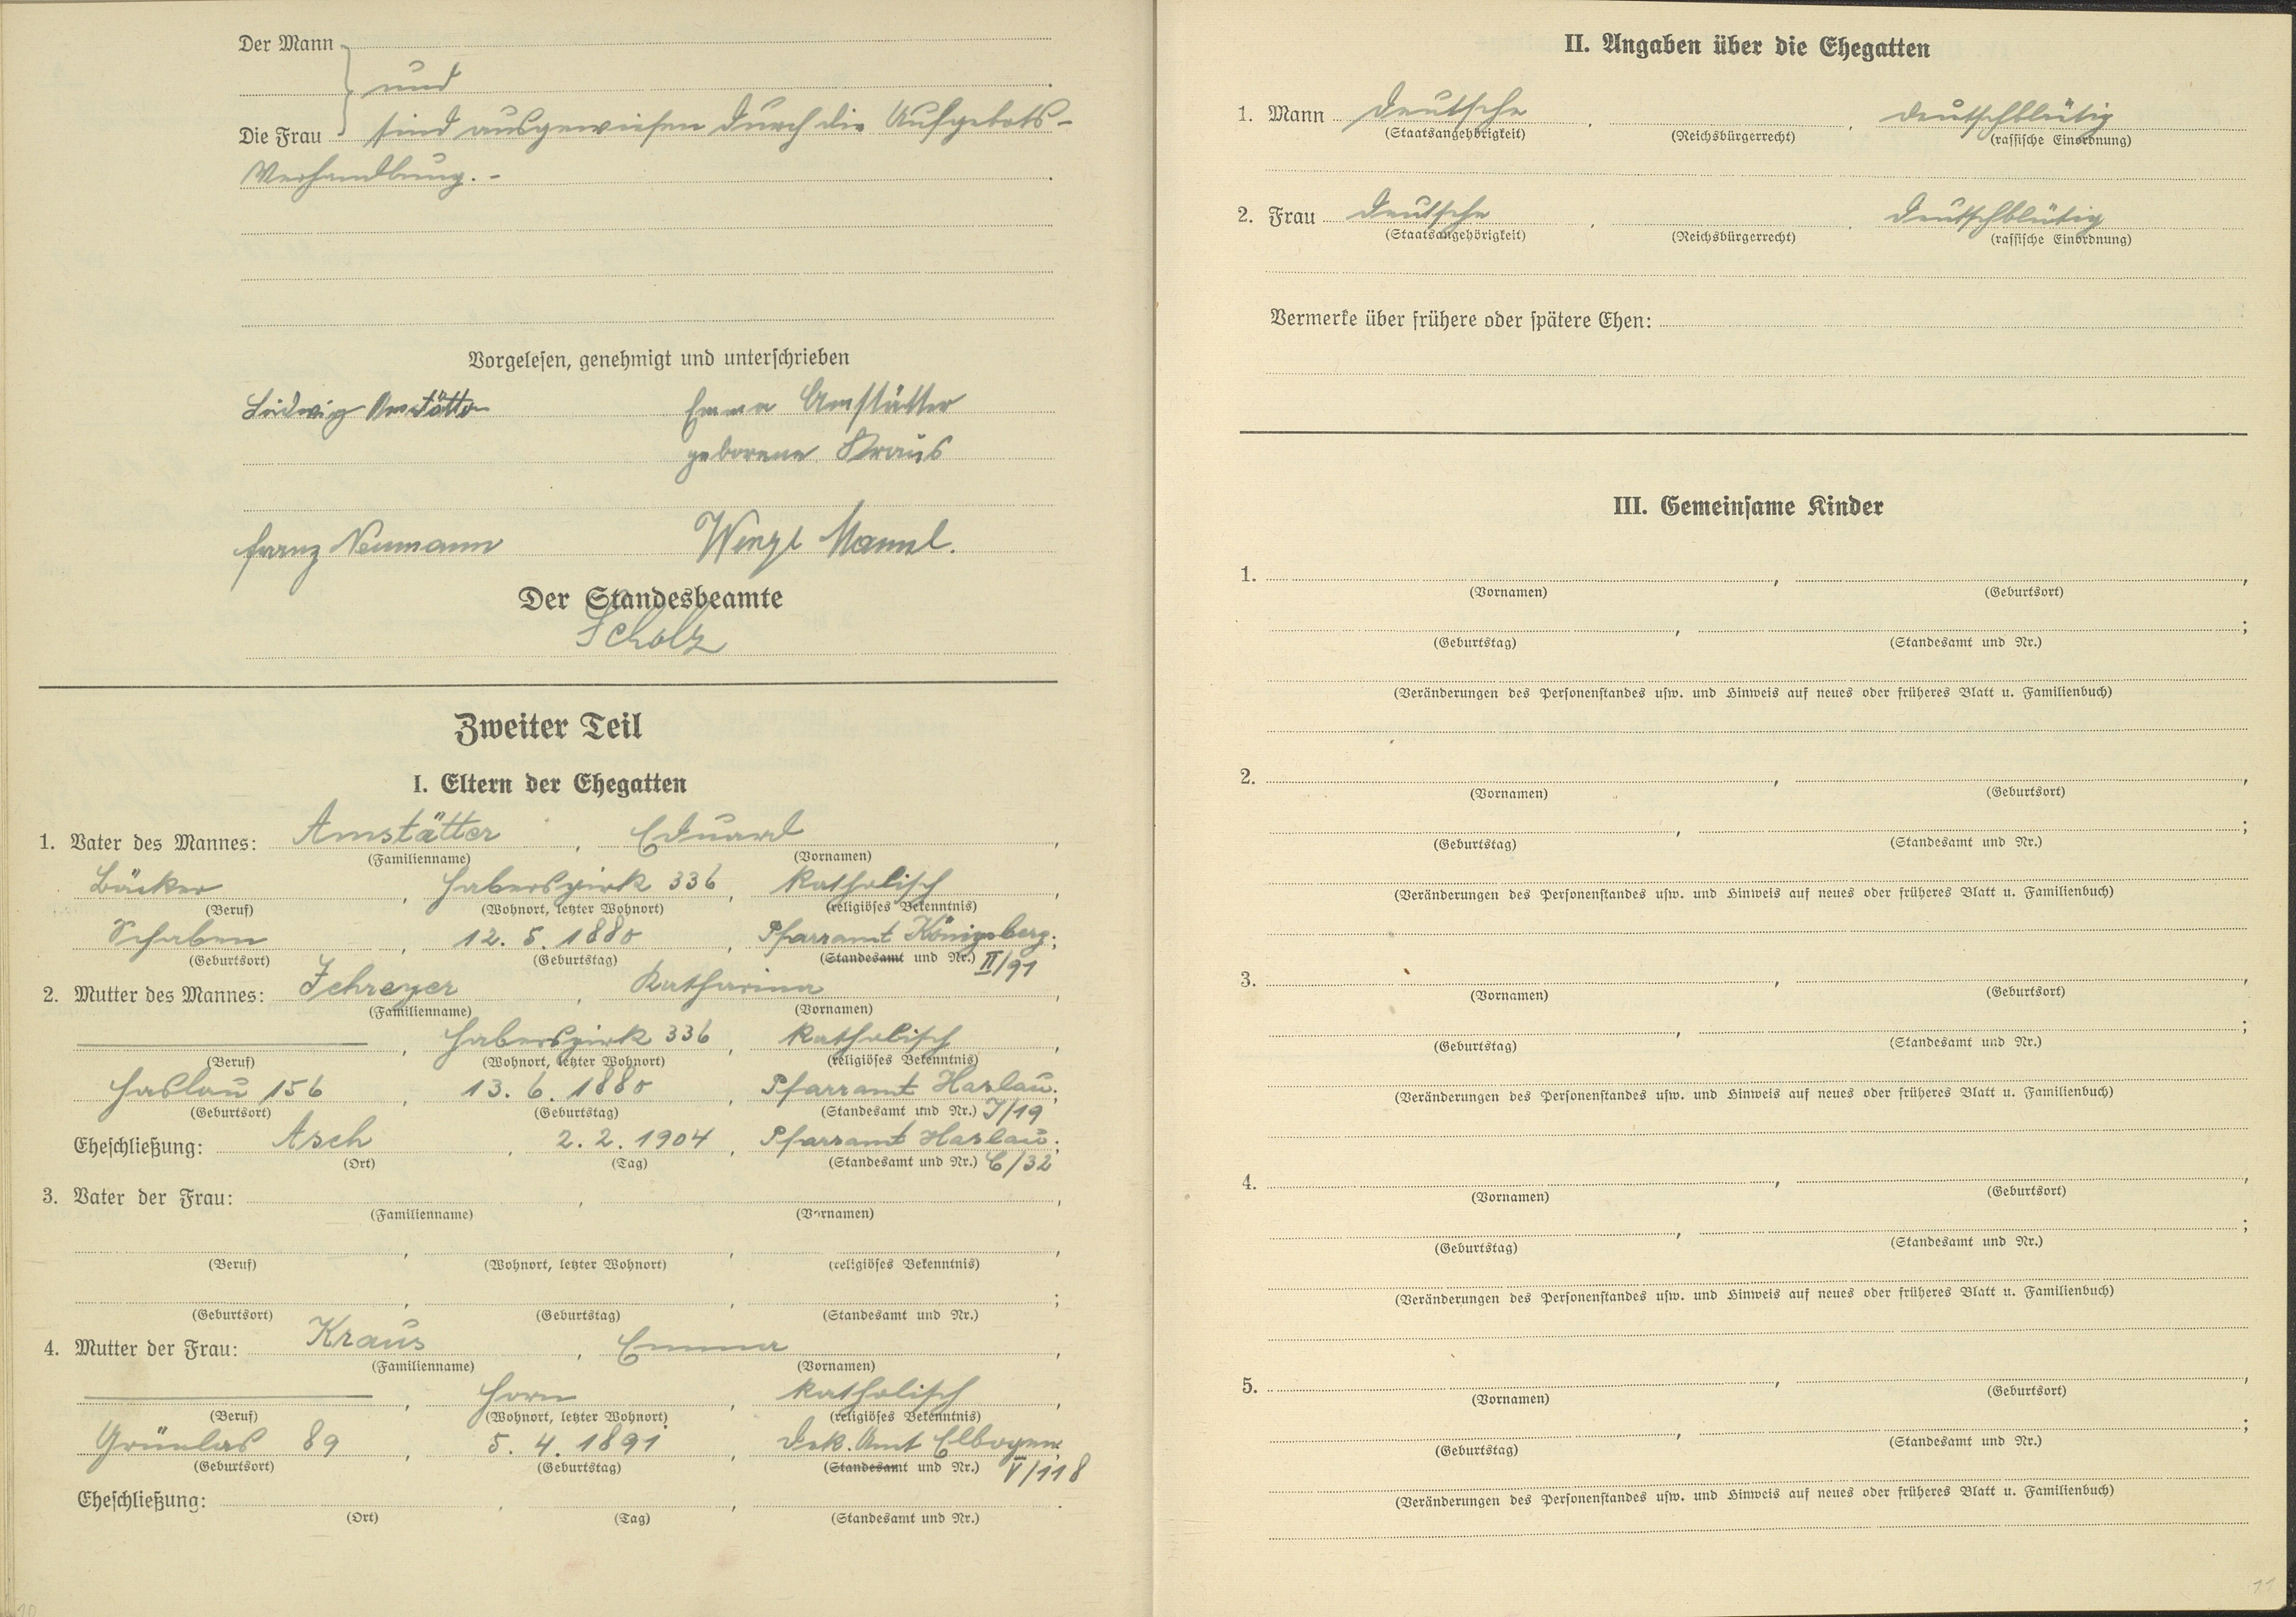 Der Mann
und
Die Frau sind ausgewiesen durch die Aufgebots-
Verhandlung. -
Vorgelesen, genehmigt und unterschrieben
Ludwig Amstätter Emma Amstätter
geborene Kraus
Franz Neumann Wenzl Mannl.
Der Standesbeamte
Scholz
Zweiter Teil
I. Eltern der Ehegatten
1. Vater des Mannes: Amstätter, Eduard,
(Familienname) (Vornamen)
Bäcker, Haberspirk 336, katholisch,
(Beruf) (Wohnort, letzter Wohnort) (religiöses Bekenntnis)
Schaben, 12. 5. 1880, Pfarramt Königsberg;
(Geburtsort) (Geburtstag) (Standesamt und Nr.) II/91
2. Mutter des Mannes: Zehreyer, Katharina,
(Familienname) (Vornamen)
, Haberspirk 336, katholisch,
(Beruf) (Wohnort, letzter Wohnort) (religiöses Bekenntnis)
Haslau 156, 13. 6. 1880, Pfarramt Haslau;
(Geburtsort) (Geburtstag) (Standesamt und Nr.) I/19
Eheschließung: Asch, 2. 2. 1904, Pfarramt Haslau;
(Ort) (Tag) (Standesamt und Nr.) C/32
3. Vater der Frau: , ,
(Familienname) (Vornamen)
, , ,
(Beruf) (Wohnort, letzter Wohnort) (religiöses Bekenntnis)
, , ;
(Geburtsort) (Geburtstag) (Standesamt und Nr.)
4. Mutter der Frau: Kraus, Emma,
(Familienname) (Vornamen)
, Horn, katholisch,
(Beruf) (Wohnort, letzter Wohnort) (religiöses Bekenntnis)
Grünlas 89, 5. 4. 1891, Dek. Amt Elbogen;
(Geburtsort) (Geburtstag) (Standesamt und Nr.) V/118
Eheschließung: , , .
(Ort) (Tag) (Standesamt und Nr.)
10
II. Angaben über die Ehegatten
1. Mann Deutsche, , deutschblütig
(Staatsangehörigkeit) (Reichsbürgerrecht) (rassische Einordnung)
2. Frau Deutsche, , deutschblütig
(Staatsangehörigkeit) (Reichsbürgerrecht) (rassische Einordnung)
Vermerke über frühere oder spätere Ehen:
III. Gemeinsame Kinder
1. , ,
(Vornamen) (Geburtsort)
, ;
(Geburtstag) (Standesamt und Nr.)
(Veränderungen des Personenstandes usw. und Hinweis auf neues oder früheres Blatt u. Familienbuch)
2. , ,
(Vornamen) (Geburtsort)
, ;
(Geburtstag) (Standesamt und Nr.)
(Veränderungen des Personenstandes usw. und Hinweis auf neues oder früheres Blatt u. Familienbuch)
3. , ,
(Vornamen) (Geburtsort)
, ;
(Geburtstag) (Standesamt und Nr.)
(Veränderungen des Personenstandes usw. und Hinweis auf neues oder früheres Blatt u. Familienbuch)
4. , ,
(Vornamen) (Geburtsort)
, ;
(Geburtstag) (Standesamt und Nr.)
(Veränderungen des Personenstandes usw. und Hinweis auf neues oder früheres Blatt u. Familienbuch)
5. , ,
(Vornamen) (Geburtsort)
, ;
(Geburtstag) (Standesamt und Nr.)
(Veränderungen des Personenstandes usw. und Hinweis auf neues oder früheres Blatt u. Familienbuch)
11